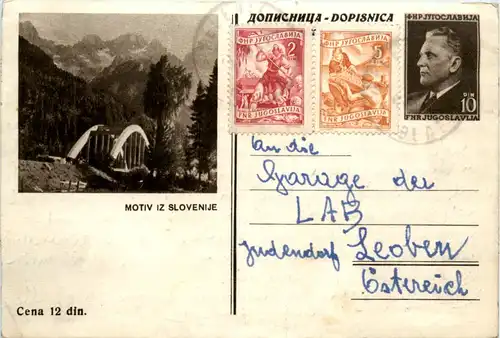 ДОПИСНИЦА - DOPISNICA
ФНР ЈУГОСЛАВИЈА
2
FNR JUGOSLAVIJA
ФНР ЈУГОСЛАВИЈА
5
FNR JUGOSLAVIJA
ФНР ЈУГОСЛАВИЈА
DIN
10
FNR JUGOSLAVIJA
An die
Garage der
LAB
Judendorf Leoben
Österreich
MOTIV IZ SLOVENIJE
Cena 12 din.